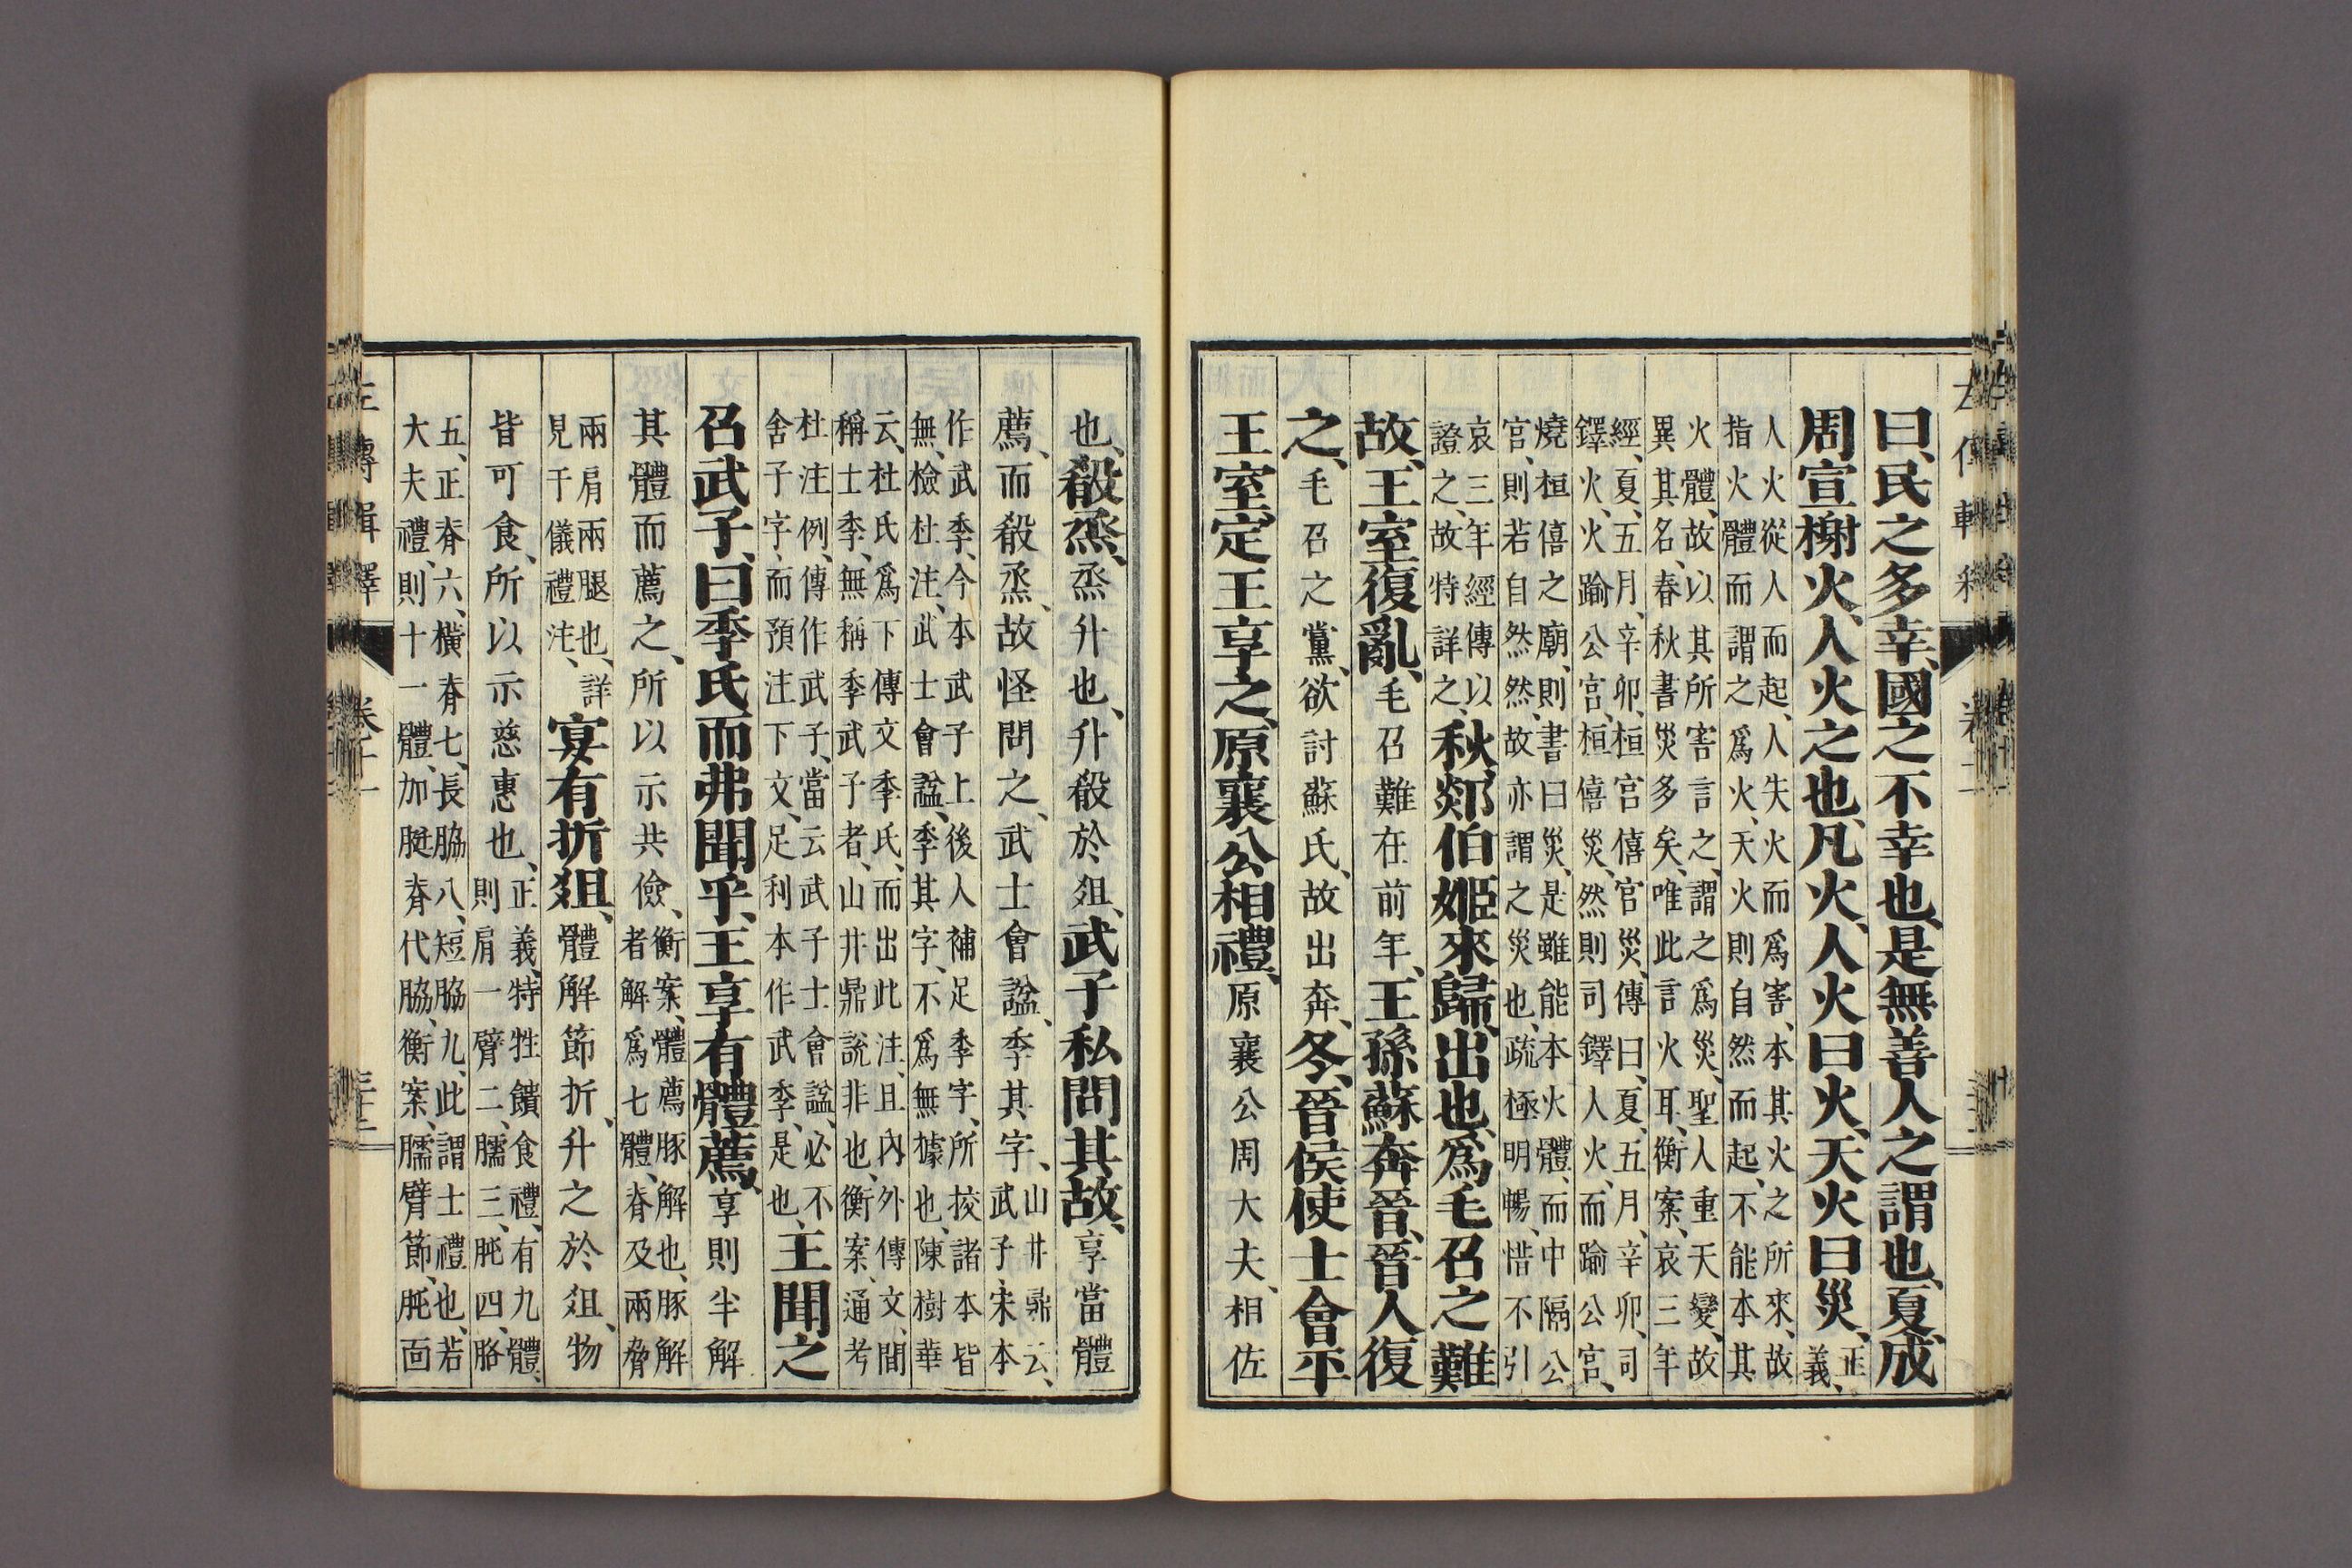 曰、民之多幸、國之不幸也、是無善人之謂也、夏、成
周宣榭火、人火之也、凡火、人火曰火、天火曰災、正
義、
人火從人人而起、人失火而爲害、本其火之所來、故
指火體而謂之爲火、天火則自然而起、不能本其
火體、故以其所害言之、謂之爲災、聖人重天變、故
異其名、春秋書災多矣、唯此言火耳、衡案、哀三年
經、夏、五月、辛卯、桓宮僖宮災、傳曰、夏、五月、辛卯、司
鐸火、火踰公宮、桓僖災、然則司鐸人火、而踰公宮、
燒桓僖之廟、則書曰災、是雖能本火體、而中隔公
宮、則若自然然、故亦謂之災也、疏極明暢、惜不引
哀三年經傳以
證之、故特詳之、秋、郯伯姬來歸、出也、爲毛召之難
故、王室復亂、毛召難在前年、王孫蘇奔晉、晉人復
之、毛召之黨、欲討蘇氏、故出奔、冬、晉侯使士會平
王室、定王享之、原襄公相禮、原襄公周大夫、相佐
也、殽烝、烝升也、升殽於俎、武子私問其故、享當體
薦、而殽烝、故怪問之、武士會諡、季其字、山井鼎云、
武子、宋本
作武季、今本武子上後人補足季字、所挍諸本皆
無、檢杜注、武士會諡、季其字、不爲無據也、陳樹華
云、杜氏爲下傳文季氏、而出此注、且內外傳文、間
稱士季、無稱季武子者、山井鼎說非也、衡案、通考
杜注例、傳作武子、當云武子士會諡、必不
舍子字、而預注下文、足利本作武季、是也、王聞之
召武子、曰季氏、而弗聞乎、王享有體薦、享則半解
其體而薦之、所以示共儉、衡案、體薦豚解也、豚解
者解爲七體、脊及兩脅
兩肩兩腿也、詳
見于儀禮注、宴有折俎、體解節折、升之於俎、物
皆可食、所以示慈惠也、正義、特牲饋食禮、有九體、
則肩一、臂二、臑三、肫四、胳
五、正脊六、橫脊七、長脇八、短脇九、此謂士禮也、若
大夫禮、則十一體、加脡脊代脇、衡案、臑臂節、肫面
左傳輯釋
卷十一